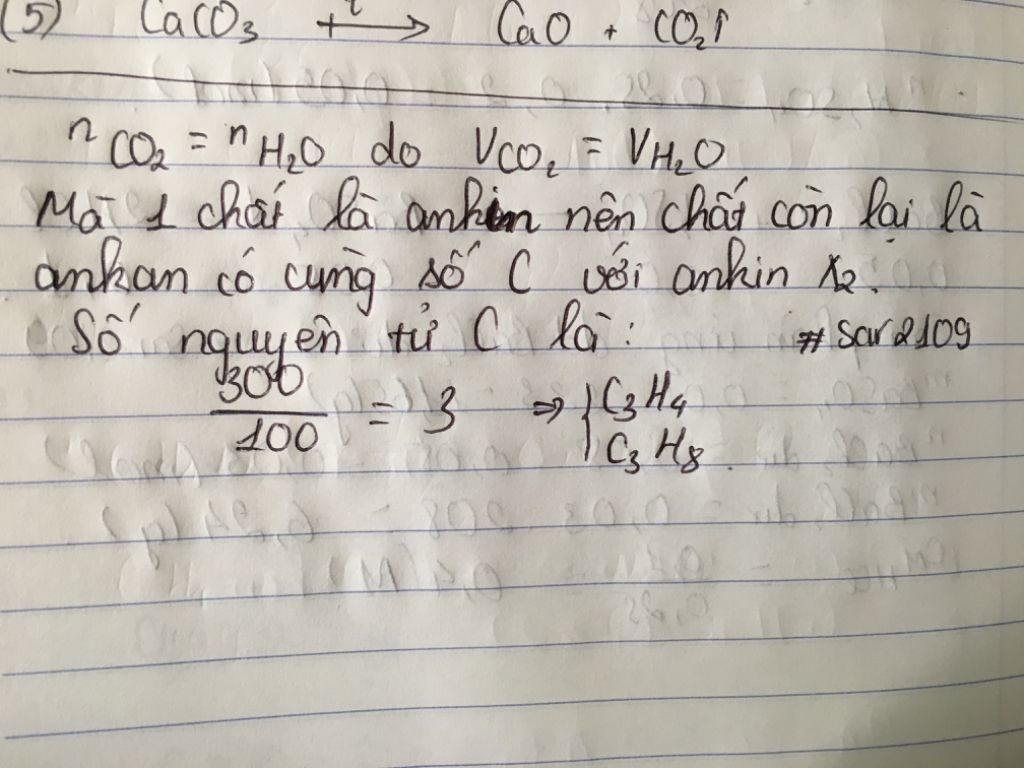 (5) CaCO₃ —t→ CaO + CO₂↑
nCO₂ = nH₂O do VCO₂ = VH₂O
Mà 1 chất là ankin nên chất còn lại là
ankan có cùng số C với ankin X₂.
Số nguyên tử C là: #sar2109
300/100 = 3 ⇒ { C₃H₄
C₃H₈.